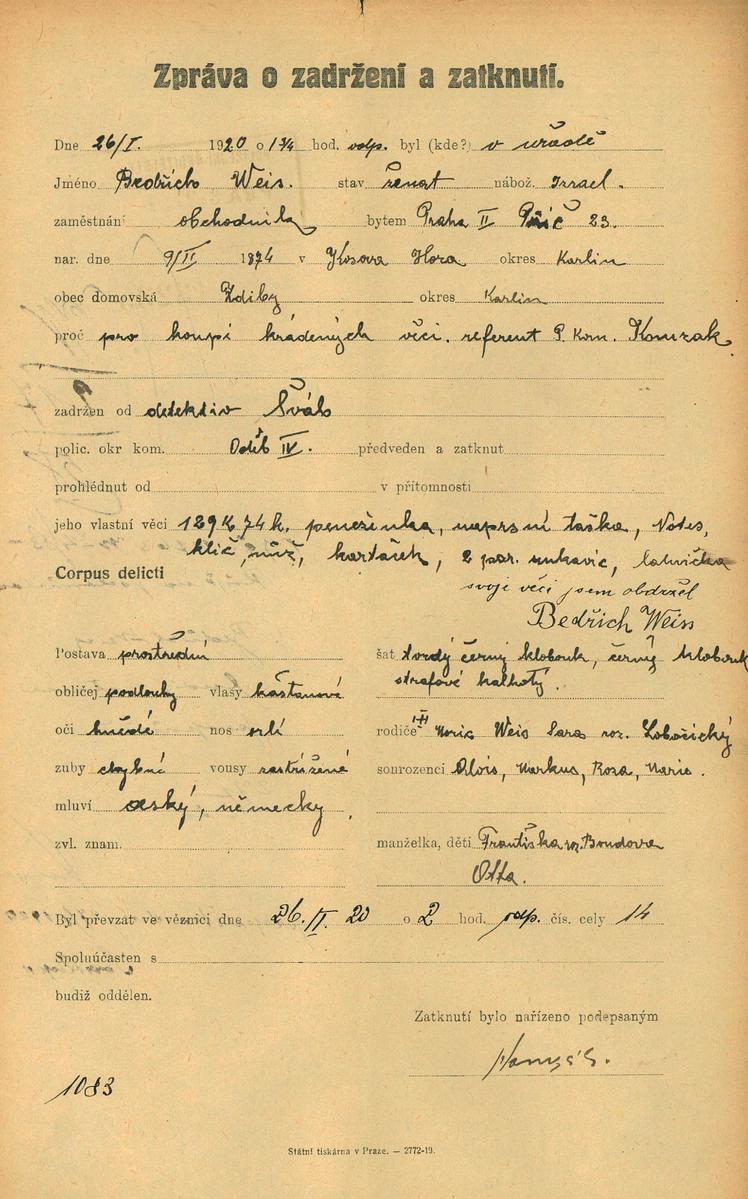 Zpráva o zadržení a zatknutí.
Dne 26/I. 1920 o 1¾ hod. odp. byl (kde?) v úřadě
Jméno Bedřich Weis. stav ženat nábož. Izrael.
zaměstnání obchodník bytem Praha II Poříč 23.
nar. dne 9/II 1874 v Kosova Hora okres Karlin
obec domovská Zdiby okres Karlin
proč pro koupi kradených věcí. referent P. Kom. Komzak
zadržen od detektiv Šváb
polic. okr kom. Odděl IV. předveden a zatknut
prohlédnut od v přítomnosti
jeho vlastní věci 129 K 74 h. peněženka, naprsní taška, Notes,
klíč, nůž, kartáček, 2 par. rukavic, lahvička
Corpus delicti
svoje věci jsem obdržel
Bedřich Weiss
Postava prostřední šat tvrdý černý klobouk, černý klobouk
obličej podlouhý vlasy kaštanové strafové kalhoty.
oči hnědé nos orlí rodiče Moric Weis Sara roz. Lobošický
zuby chybné vousy zastřižené sourozenci Alois, Markus, Roza, Marie.
mluví český, německy,
zvl. znam. manželka, děti Františka roz. Bondova
Otta.
Byl převzat ve věznici dne 26. II. 20 o 2 hod. odp. čís. cely 14
Spoluúčasten s
budiž oddělen.
Zatknutí bylo nařízeno podepsaným
1083
Státní tiskárna v Praze. — 2772-19.